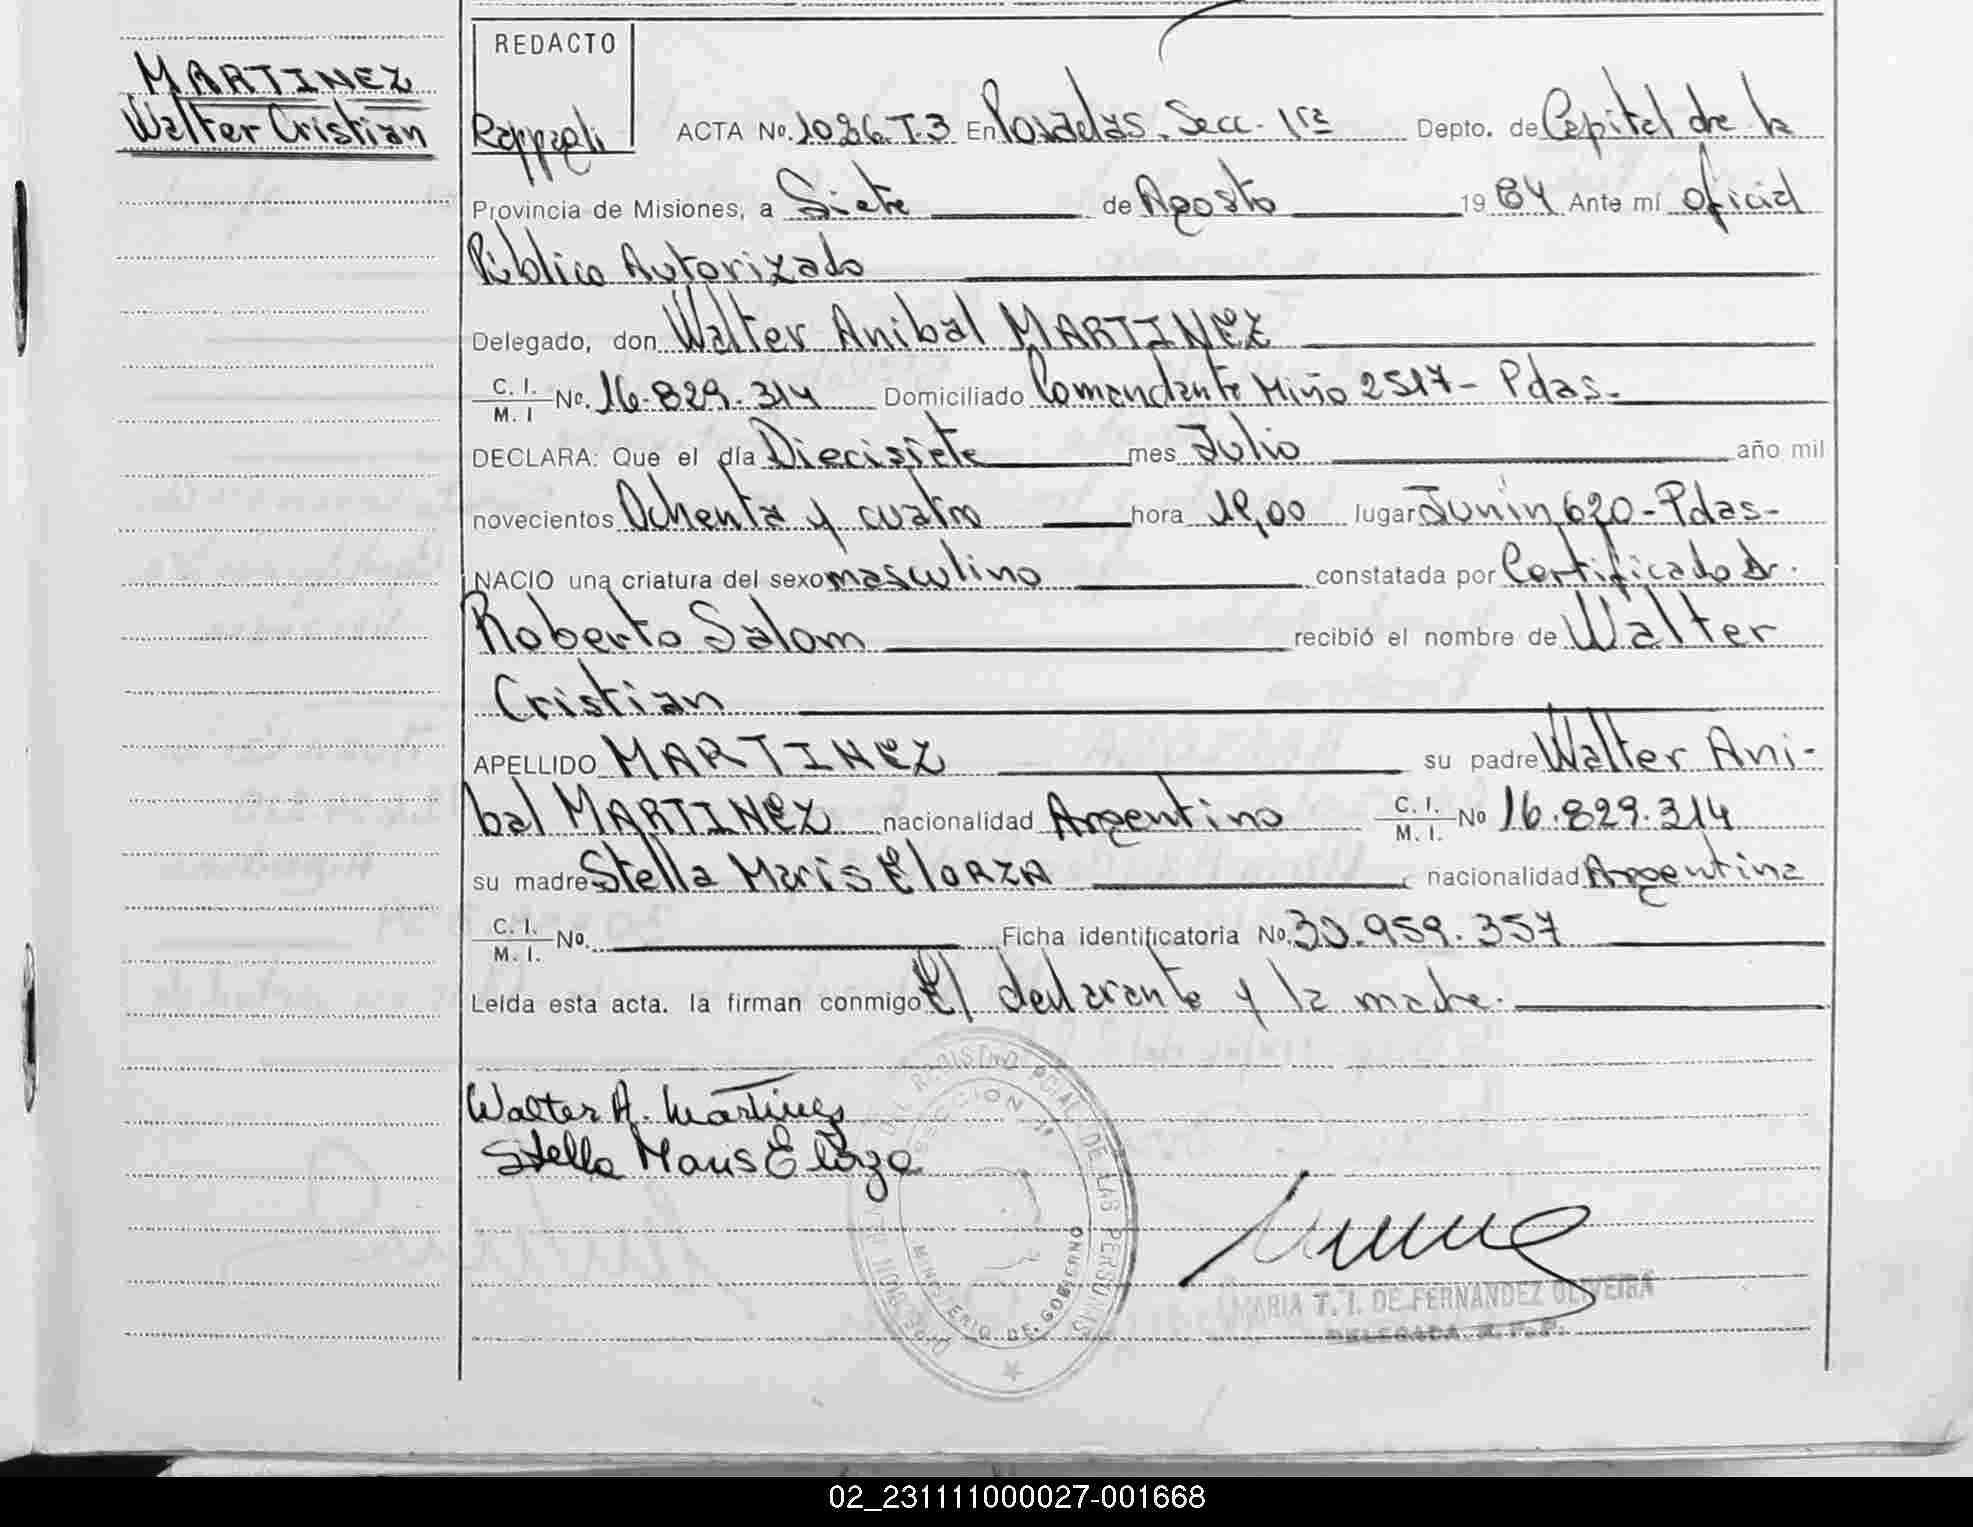 MARTINEZ
Walter Cristian
REDACTO
ACTA No. 1026 T.3 En Posadas. Secc. 1ra Depto. de Capital de la
Provincia de Misiones, a Siete de Agosto 1984 Ante mí oficial
Público Autorizado
Delegado, don Walter Anibal MARTINEZ
C. I.
M. I No. 16.829.314 Domiciliado Comandante Miño 2517 - Pdas-
DECLARA: Que el día Diecisiete mes Julio año mil
novecientos Ochenta y cuatro hora 19,00 lugar Junín 620 - Pdas-
NACIO una criatura del sexo masculino constatada por Certificado dr.
Roberto Salom recibió el nombre de Walter
Cristian
APELLIDO MARTINEZ su padre Walter Ani-
bal MARTINEZ nacionalidad Argentino C. I.
M. I. No 16.829.314
su madre Stella Maris ElORZA nacionalidad Argentina
C. I.
M. I. No. Ficha identificatoria No. 30.959.357
Leída esta acta. la firman conmigo El declarante y la madre.
Walter A. Martinez
Stella Maris Elorza
REGISTRO PCIAL DE LAS PERSONAS
SECCION 1ª
MINISTERIO DE GOBIERNO
MARIA T. I. DE FERNANDEZ OLIVEIRA
DELEGADA R. P. P.
02_231111000027-001668